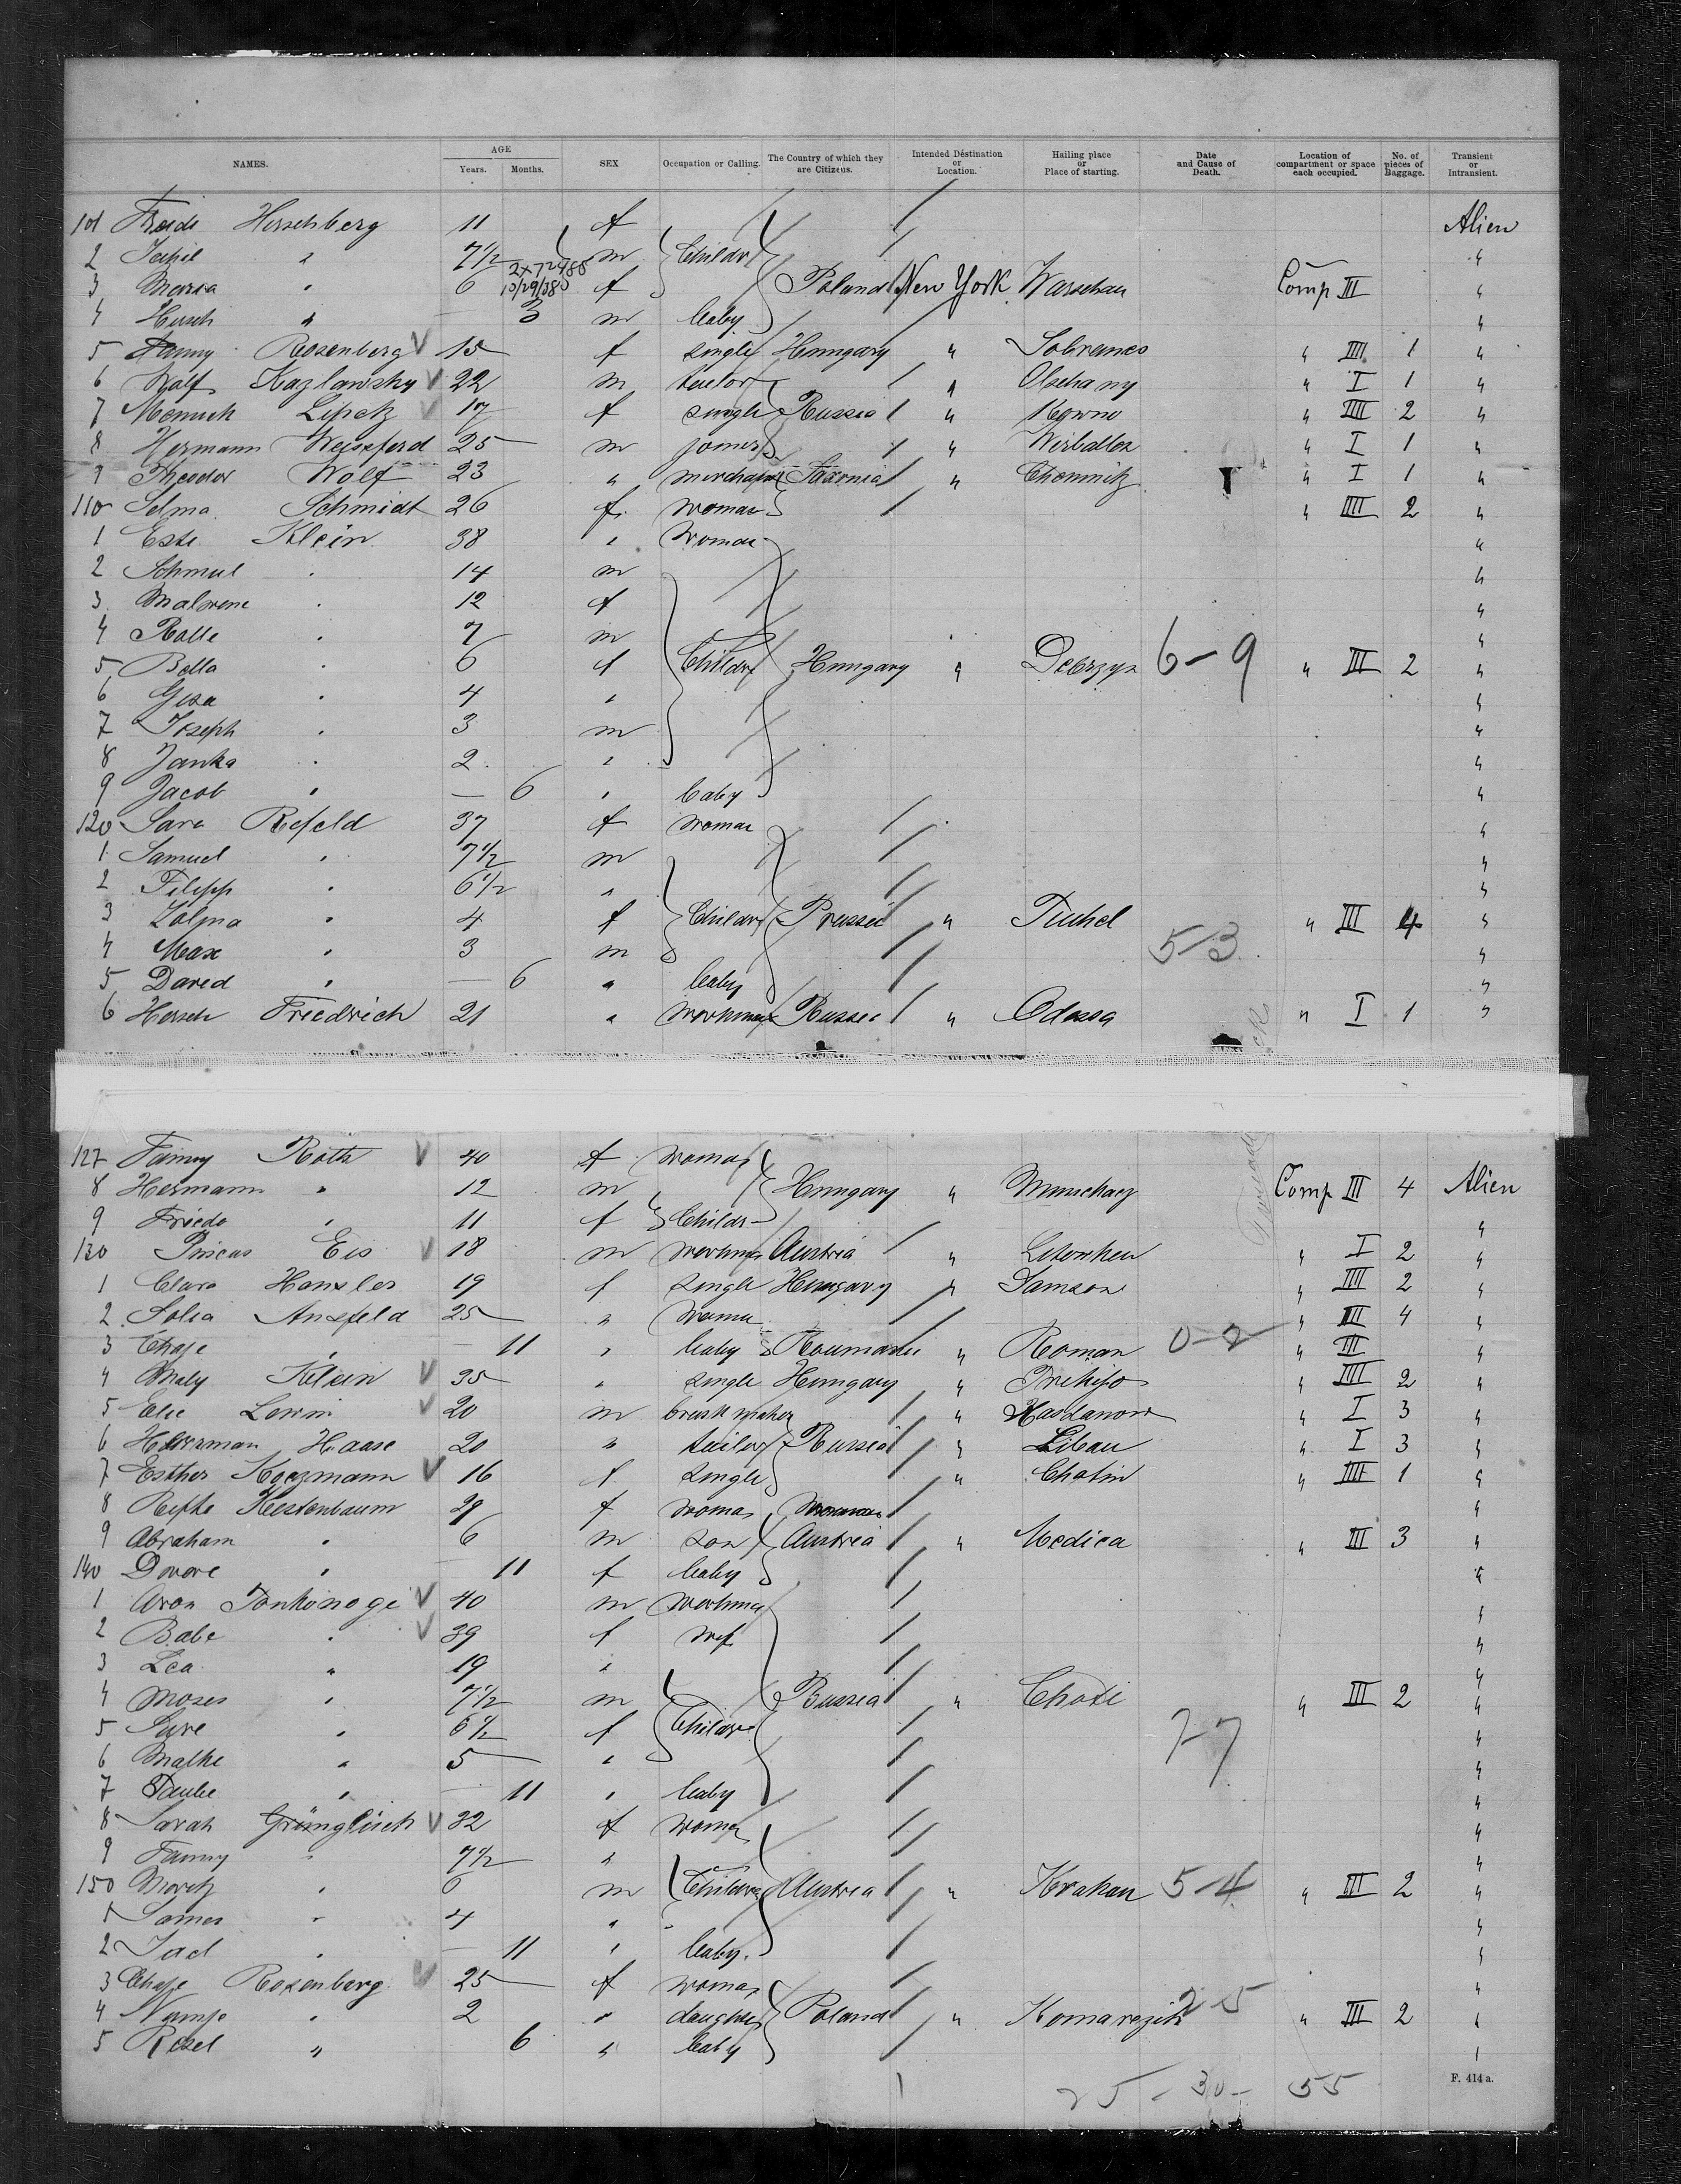 NAMES. AGE Years. Months. SEX Occupation or Calling. The Country of which they are Citizens. Intended Déstination or Location. Hailing place or Place of starting. Date and Cause of Death. Location of compartment or space each occupied. No. of pieces of Baggage. Transient or Intransient.
101 Hirschberg 11 f Alien
2 " 7½ m Childr "
2x72488
3 Maria " 6 f Poland New York Warschau Comp III "
10/29/38
4 Hirsch " — 3 m baby "
5 Fanny Rosenberg V 15 f single Hungary " Sobrance " IIII 1 "
6 Wolf Kazlawsky V 22 m tailor " Olschany " I 1 "
7 Lipetz V 17 f single Russia " Kowno " IIII 2 "
8 Hermann Weissferd 25 m joiner " Wirballen " I 1 "
9 Theodor Wolf 23 " merchant Saxonia " Chemnitz " I 1 "
110 Selma Schmidt 26 f. woman " IIII 2 "
1 Esti Klein 38 " woman "
2 Schmul " 14 m "
3 Malwene " 12 f "
4 Rolle " 7 m "
5 Bella " 6 f Childr Hungary " 6-9 " III 2 "
6 Gisa " 4 " "
7 Joseph " 3 m "
8 Janka " 2 " "
9 Jacob " — 6 " baby "
120 Sara Refeld 37 f woman "
1 Samuel " 7½ m "
2 Filipp " 6½ " "
3 Zolma " 4 f Childr Prussia " Tuchel " III 4 "
4 Max " 3 m 5/3 "
5 David " — 6 " baby "
6 Hersch Friedrich 21 " workman Russia " Odessa " I 1 "
127 Fanny Roth V 40 f woman
8 Hermann " 12 m Hungary " Comp III 4 Alien
9 Friede " 11 f Childr "
130 Pincus Eis V 18 m workman Austria " " I 2 "
1 Clara Hansler 19 f single Hungary " Samson " IIII 2 "
2 Anxfeld 25 " woman " III 4 "
3 Chaje " — 11 " baby Roumania " Roman 0-2 " III "
4 Maly Klein V 35 " single Hungary " " IIII 2 "
5 Elie Lewin V 20 m brush maker " Kasdanow " I 3 "
6 Herrman Haase 20 " tailor Russia " Libau " I 3 "
7 Esther Koczmann V 16 f single " Chotin " IIII 1 "
8 Kestenbaum 29 f woman "
9 Abraham " 6 m son Austria " Medica " III 3 "
140 Dovore " — 11 f baby "
1 Aron Tonkonogi V 40 m workman "
2 Babe " V 39 f wif "
3 Lea " 19 " "
4 Moses " 7½ m Russia " Choti " III 2 "
5 Sure " 6½ f Childre "
6 Malke " 5 " 7-7 "
7 Taube " — 11 " baby "
8 Sarah Grünglück V 32 f woman "
9 Fanny " 7½ " "
150 Moritz " 6 m Childre Austria " Krakau 5-4 " III 2 "
1 " 4 " "
2 " — 11 " baby. "
3 Chaje Rosenberg V 25 f woman "
4 " 2 " daughter Poland " 2-5 " III 2 "
5 Resel " 6 " baby
25 - 30 - 55
F. 414 a.